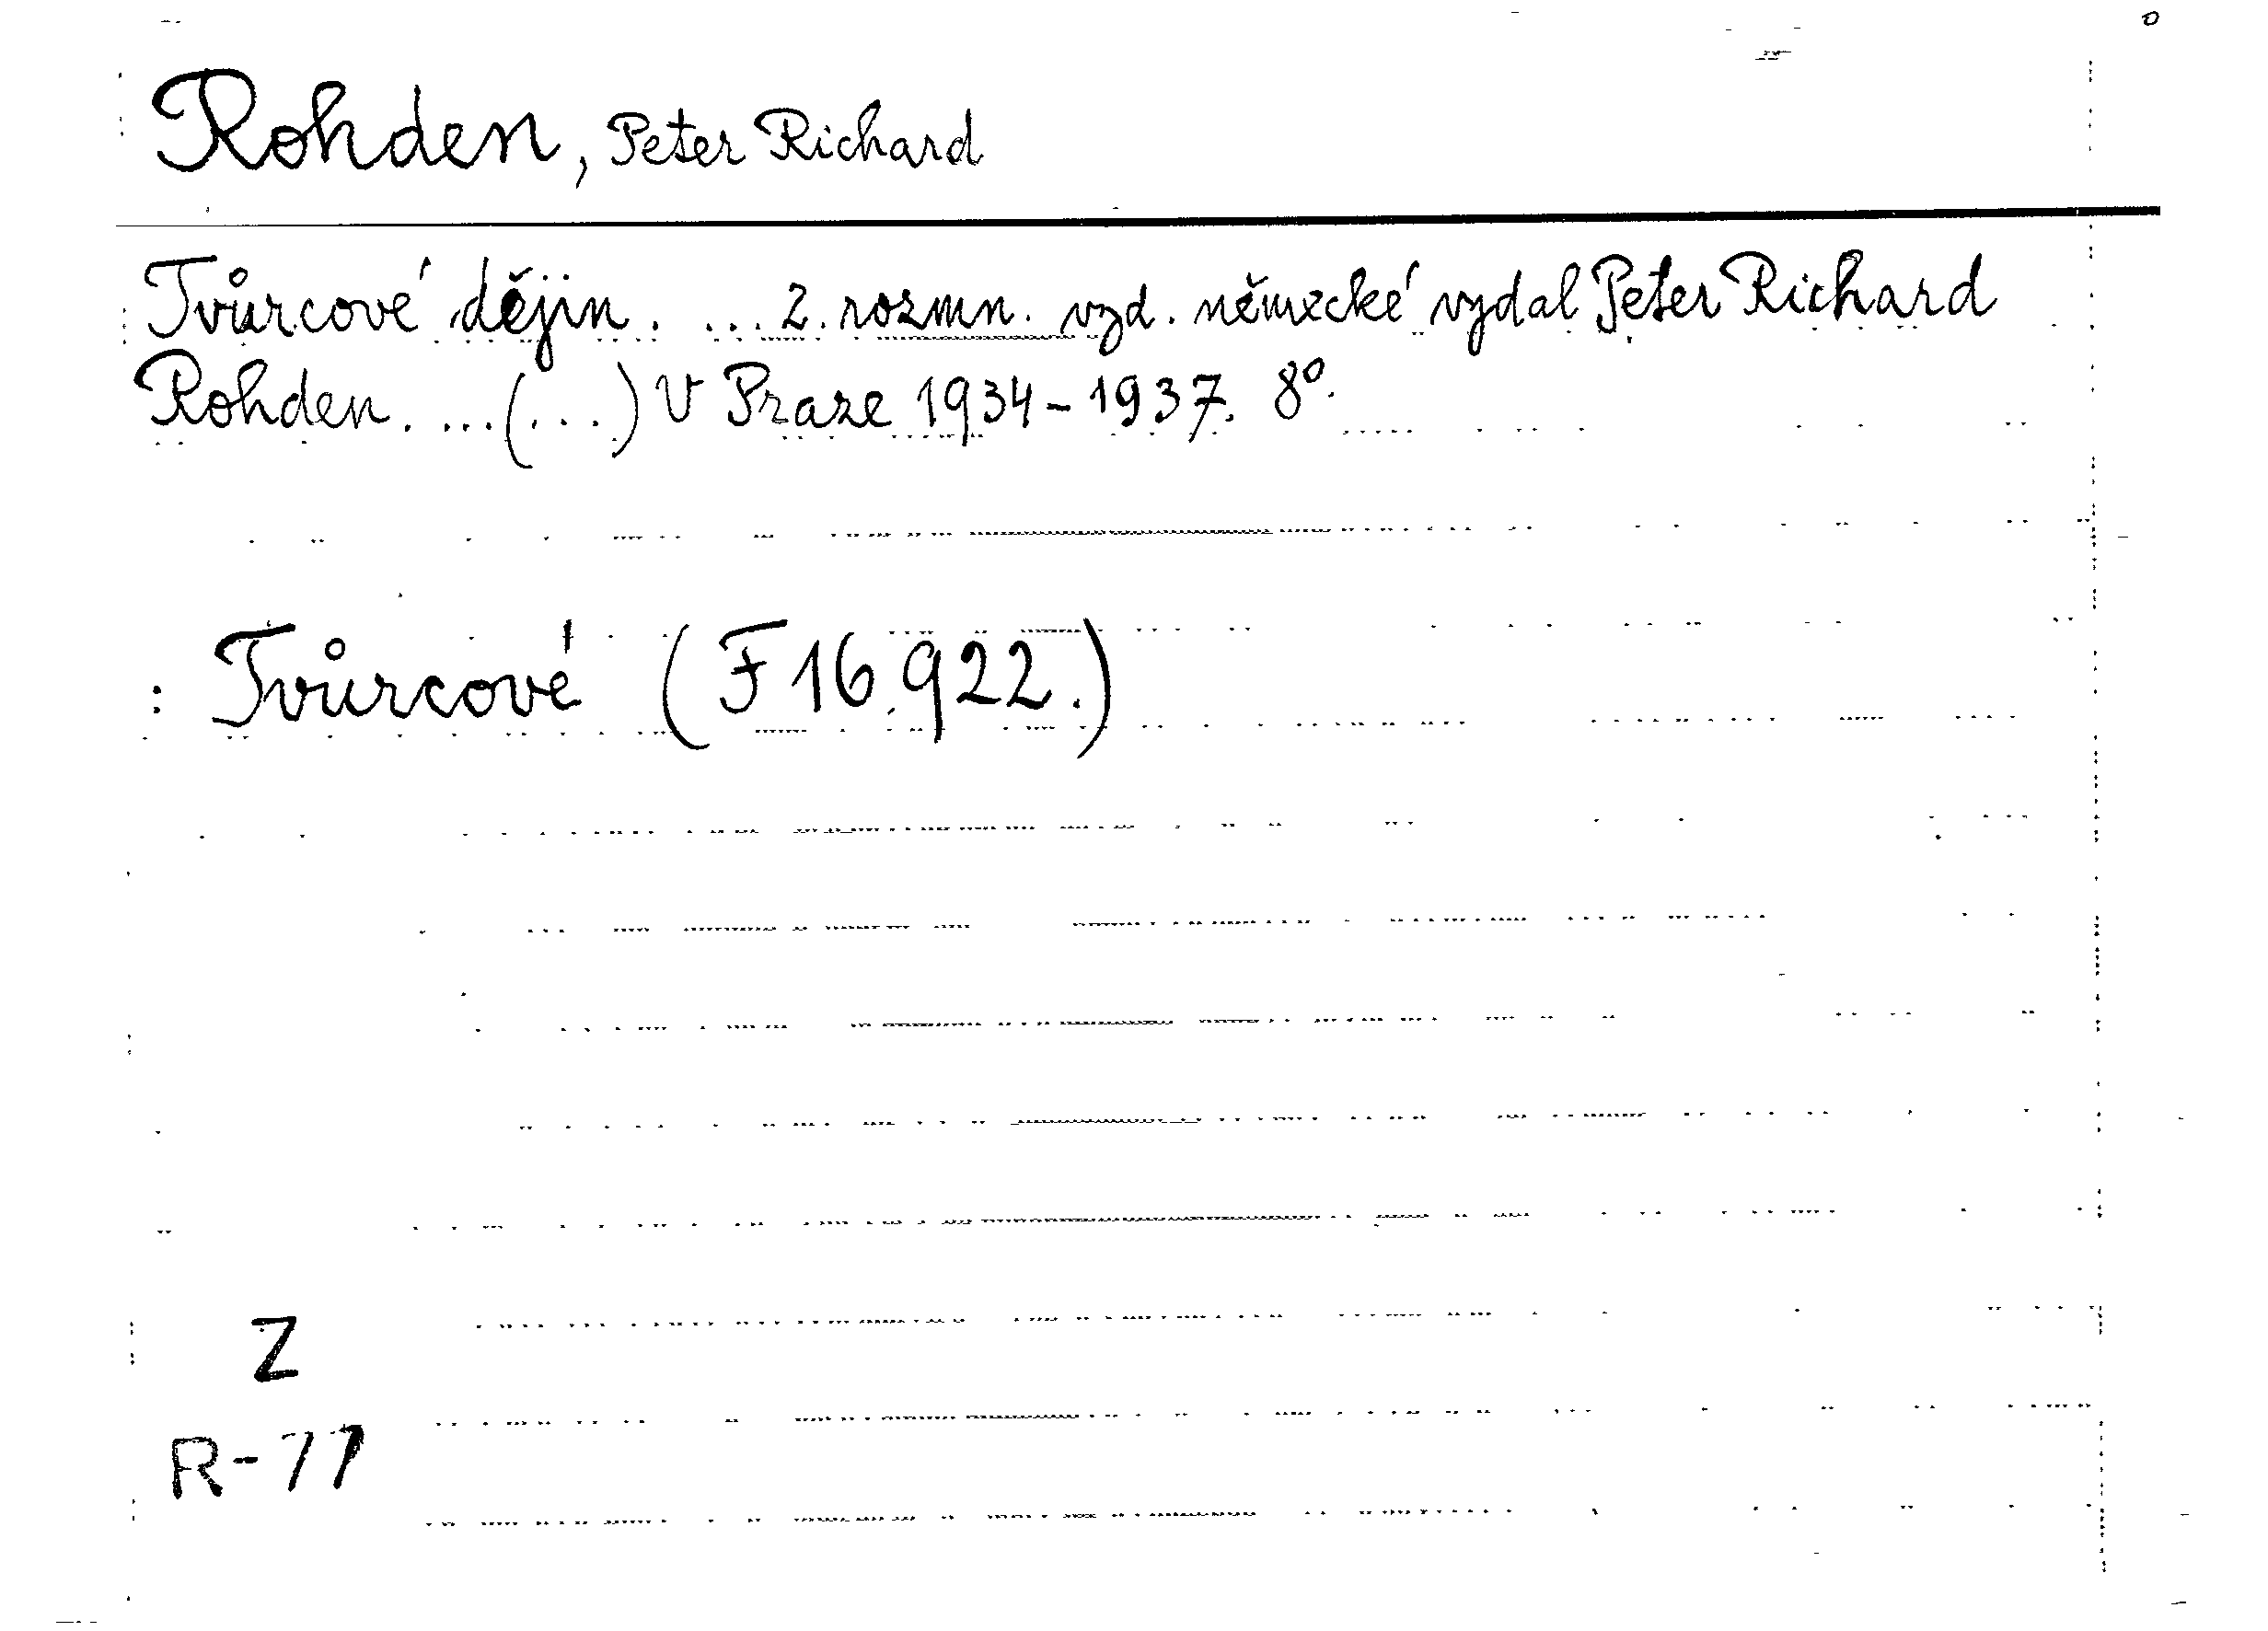 Rohden, Peter Richard
Tvůrcové dějin. ... 2. rozmn. vyd. německé vydal Peter Richard
Rohden. ...(...) V Praze 1934-1937. 8°.
: Tvůrcové (F 16.922.)
Z
R-77